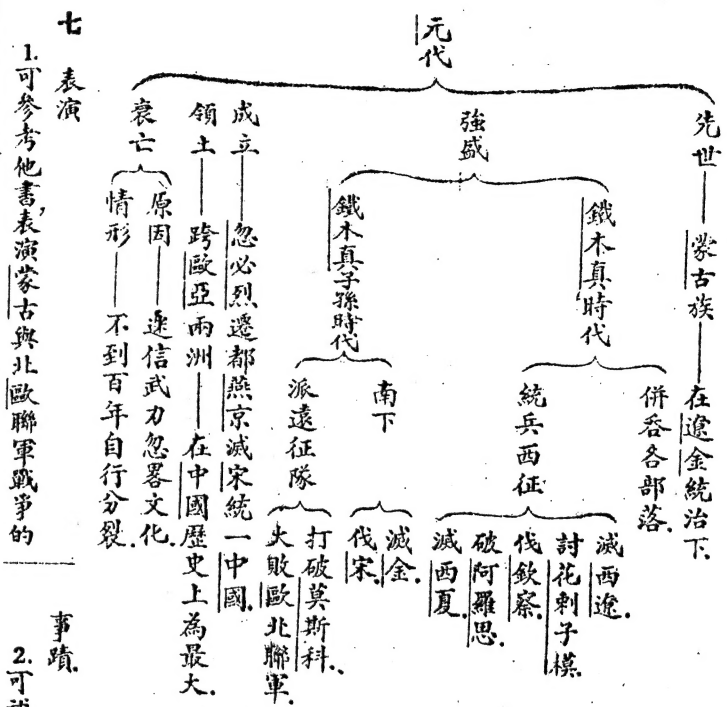 元代
先世
蒙古族
在遼金統治下.
強盛
鐵木真時代
併吞各部落.
統兵西征
滅西遼.
討花剌子模.
伐欽察.
破阿羅思.
滅西夏.
鐵木真子孫時代
南下
滅金.
伐宋.
派遠征隊
打破莫斯科.
大敗歐北聯軍.
成立
忽必烈遷都燕京滅宋統一中國.
領土
跨歐亞兩洲
在中國歷史上為最大.
衰亡
原因
迷信武力忽畧文化.
情形
不到百年自行分裂.
七 表演
1.可參考他書,表演蒙古與北歐聯軍戰爭的
事蹟.
2.可